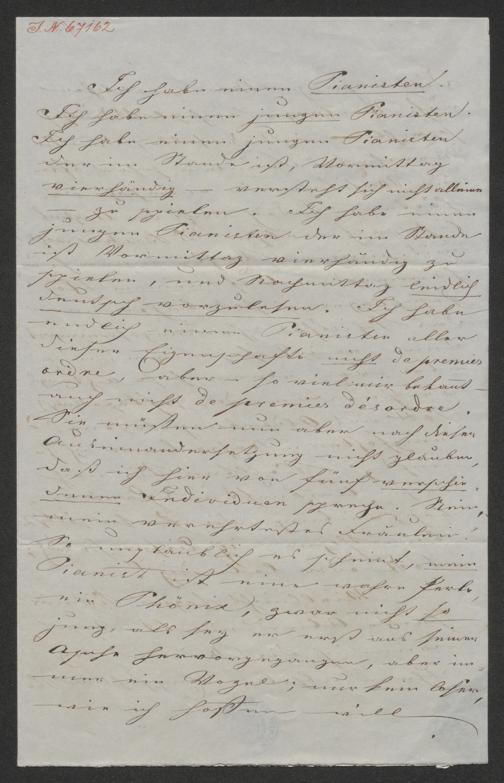 I.N. 67162
Ich habe einen Pianisten.
Ich habe einen jungen Pianisten.
Ich habe einen jungen Pianisten
der im Stande ist, Vormittag
vierhändig — versteht sich nicht alleine
zu spielen. Ich habe einen
jungen Pianisten der im Stande
ist Vormittag vierhändig zu
spielen, und Nachmittag leidlich
deutsch vorzulesen. Ich habe
endlich einen Pianisten aller
dieser Eigenschafte nicht de premier
ordre, aber – so viel mir bekant –
auch nicht de premier désordre.
Sie müssen nun aber nach dieser
Auseinandersetzung nicht glauben,
daß ich hier von fünf verschie-
denen Individuen spreche. Nein,
mein verehrtestes Fräulein!
So unglaublich es scheint, mein
Pianist ist eine wahre Perle,
ein Phönix, zwar nicht so
jung als sey er erst aus seiner
Asche hervorgegangen, aber im-
mer ein Vogel; nur kein loser,
wie ich hoffen will